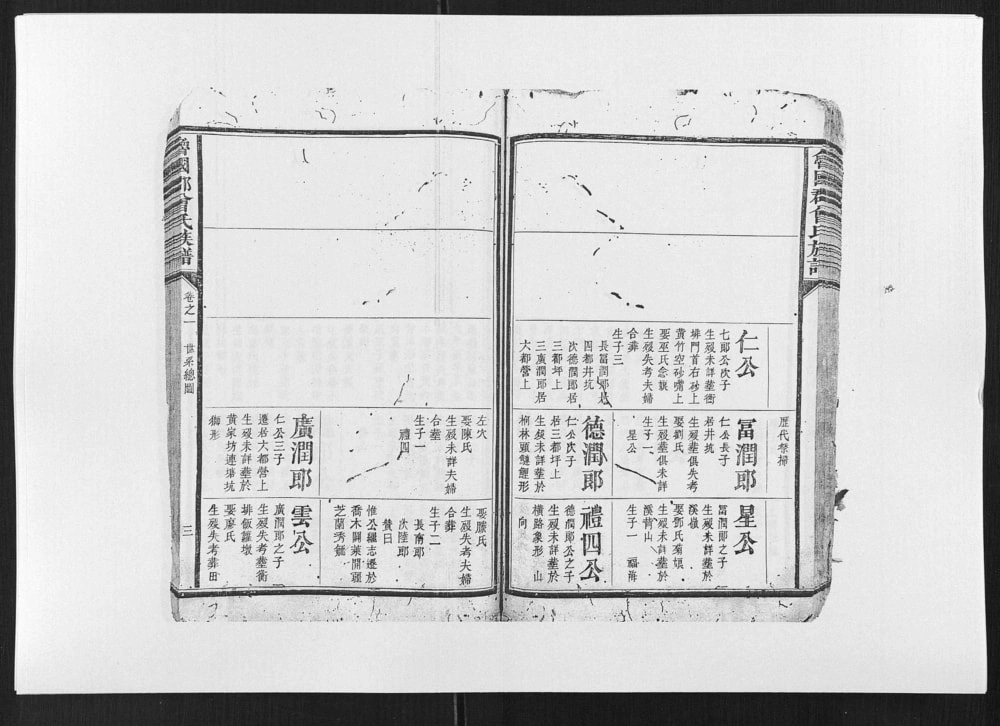 仁公
七郎公次子
生歿未詳葬衙
埤門首右砂上
黄竹空砂嘴上
娶巫氏念娘
生歿失考夫婦
合葬
生子三
長冨潤郎居
四都井坑
次德潤郎居
三都坪上
三廣潤郎居
大都營上
歷代祭掃
冨潤郎
仁公長子
居井坑
生歿葬俱失考
娶劉氏
生歿葬俱未詳
生子一
星公
德潤郎
仁公次子
居三都坪上
生歿未詳葬於
星公
冨潤郎之子
生歿未詳葬於
溪嶺
娶鄧氏菊娘
生歿未詳葬於
溪營山
生子一 福海
禮四公
德潤郎公之子
生歿未詳葬於
橫路象形 山
向
左穴
娶陳氏
生歿未詳夫婦
合葬
生子一
禮四
廣潤郎
仁公三子
遷居大都營上
生歿未詳葬於
黄家坊連塘坑
獅形
娶滕氏
生歿失考夫婦
合葬
生子二
長甫郎
次陸郎
贊曰
惟公繼志遷於
喬木關萊開疆
芝蘭秀毓
雲公
廣潤郎之子
生歿失考葬衡
排飯籮墩
娶廖氏
生歿失考葬田
魯國郡曾氏族譜
卷之一
世系總圖
三